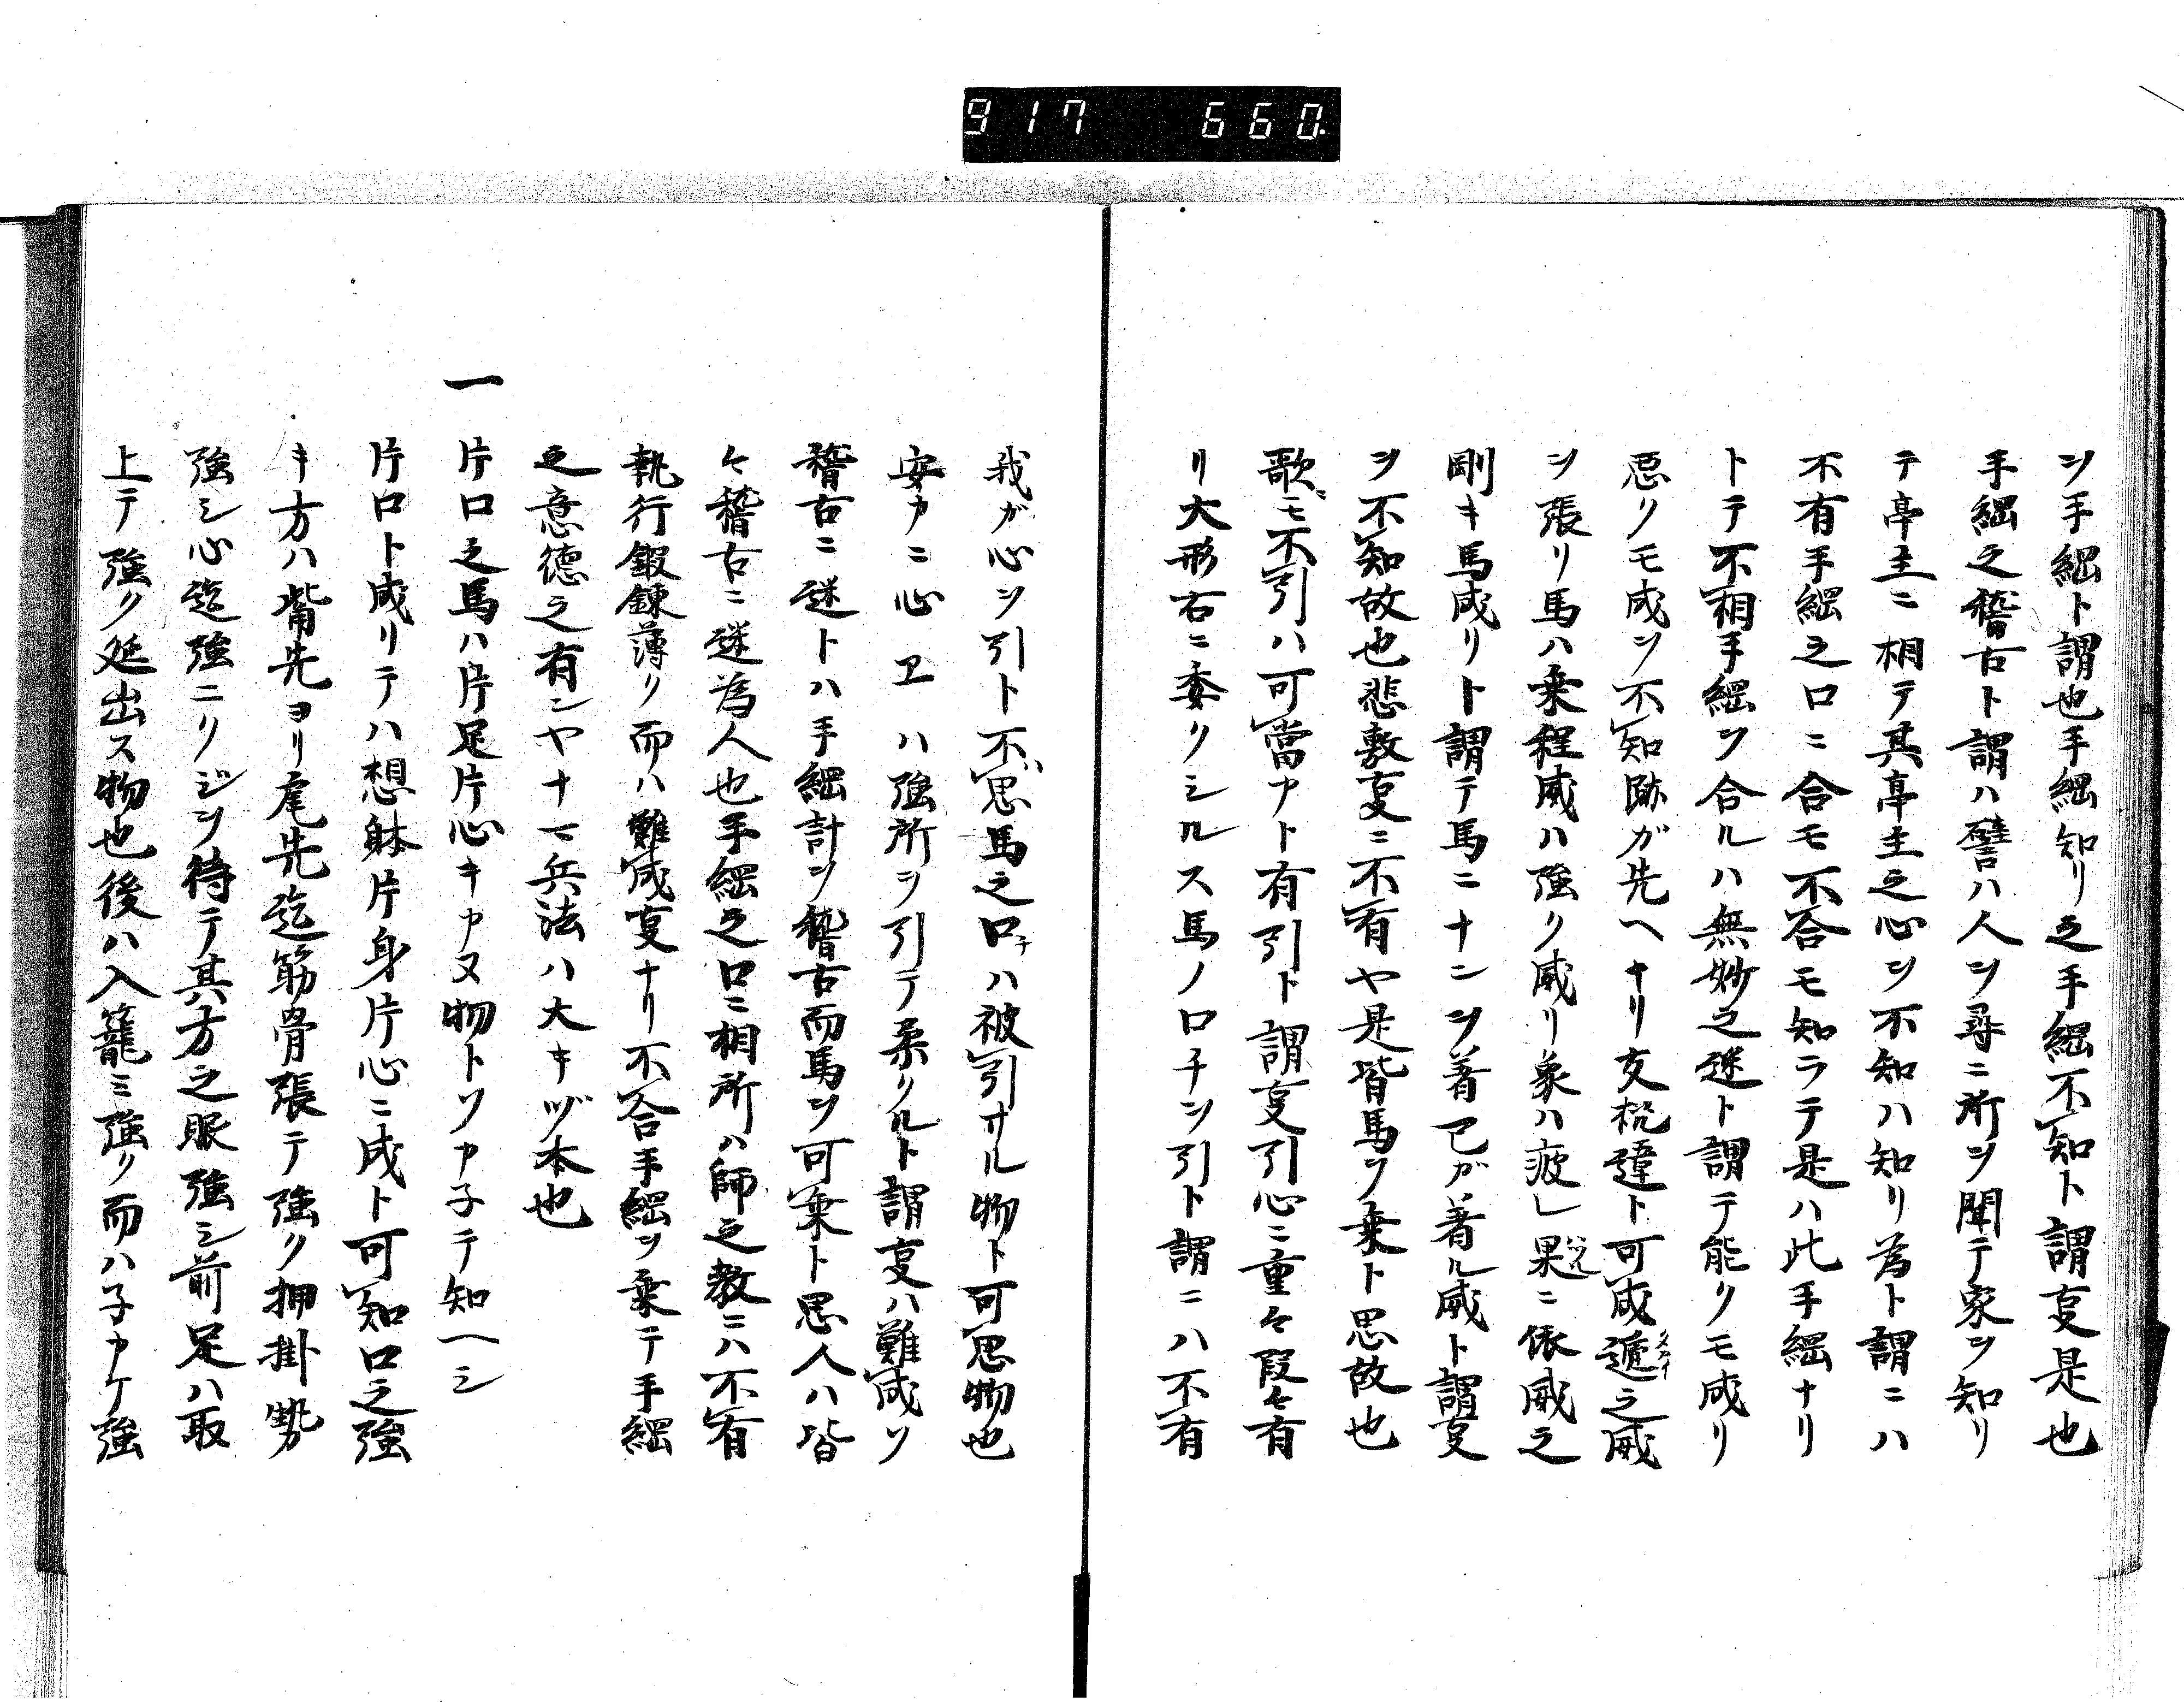 917 660.
ヲ手綱ト謂也手綱知リ之手綱不知ト謂叓是也
手綱之稽古ト謂ハ譬ハ人ヲ尋ニ所ヲ聞テ家ヲ知リ
テ亭主ニ相テ其亭主之心ヲ不知ハ知リ為ト謂ニハ
不有手綱之口ニ合モ不合モ知ラテ是ハ此手綱ナリ
トテ不相手綱ヲ合ルハ無妙之迷ト謂テ能クモ成リ
悪クモ成ヲ不知跡ガ先ヘナリ支 違ト可成遁之威
ヲ張リ馬ハ乗程威ハ強ク威リ象ハ疲レ果ニ依威之
剛キ馬成リト謂テ馬ニナンヲ着已ガ着ル威ト謂叓
ヲ不知故也悲敷叓ニ不有ヤ是皆馬ヲ乗ト思故也
歌ニモ不引ハ可當ナト有引ト謂叓引心ニ重々段々有
リ大形右ニ委クシルス馬ノロチヲ引ト謂ニハ不有
我ガ心ヲ引ト不思馬之口ハ被引ナル物ト可思物也
安カニ心 ハ強所ヲ引テ柔クルト謂叓ハ難成ソ
稽古ニ迷トハ手綱計ヲ稽古而馬ヲ可乗ト思人ハ皆
々稽古ニ迷為人也手綱之口ニ相所ハ師之教ニハ不有
執行鍜錬薄リ而ハ難成叓ナリ不合手綱ヲ乗テ手綱
之意徳之有ンヤナマ兵法ハ大キヅ本也
一 片口之馬ハ片足片心キカヌ物トソカ子テ知ヘシ
片口ト成リテハ想躰片身片心ニ成ト可知口之強
キ方ハ觜先ヨリ尾先迄筋骨張テ強ク押掛勢
強シ心迄強ニクジヲ待テ其方之眼強シ前足ハ取
上テ強ク延出ス物也後ハ入籠ミ強ク而ハ子カケ強